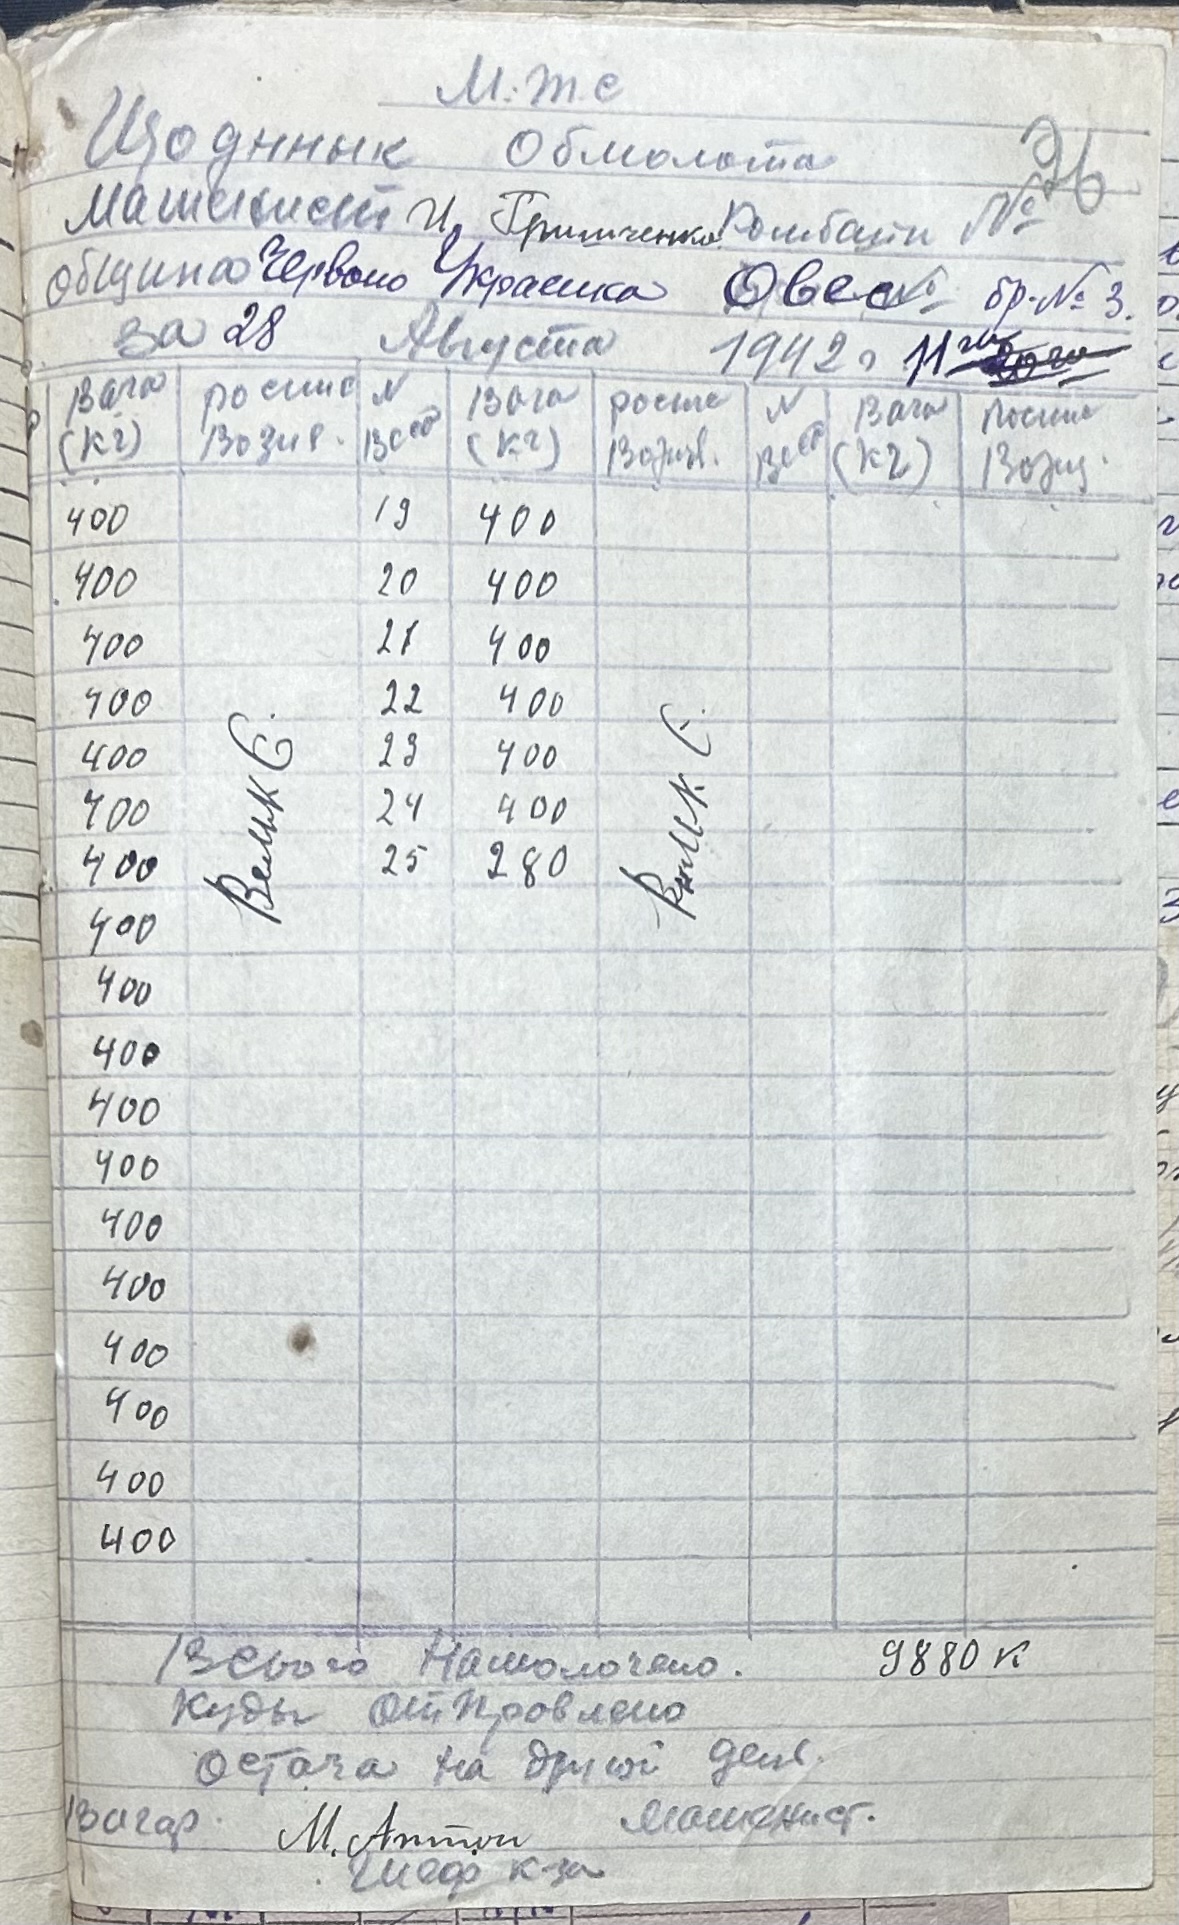 М.Т.С
Щоднник Обмолота 26
Машинист И. Гритченко Комбайн №
община Червоно Украинка Овес бр. № 3.
за 28 Августа 1942 г 11
Вага (кг) роспис Возив. N Вест Вага (кг) роспис Возив. N Вест Вага (кг) Роспис Возив.
400 19 400
400 20 400
400 21 400
400 22 400
400 23 400
400 24 400
400 25 280
Велик С. Велик С.
400
400
400
400
400
400
400
400
400
400
400
Всього Намолочено. 9880 к
Куды Отправлено
Остача на другой день.
Вагар. М. Антон Машинист.
Шеф к-за